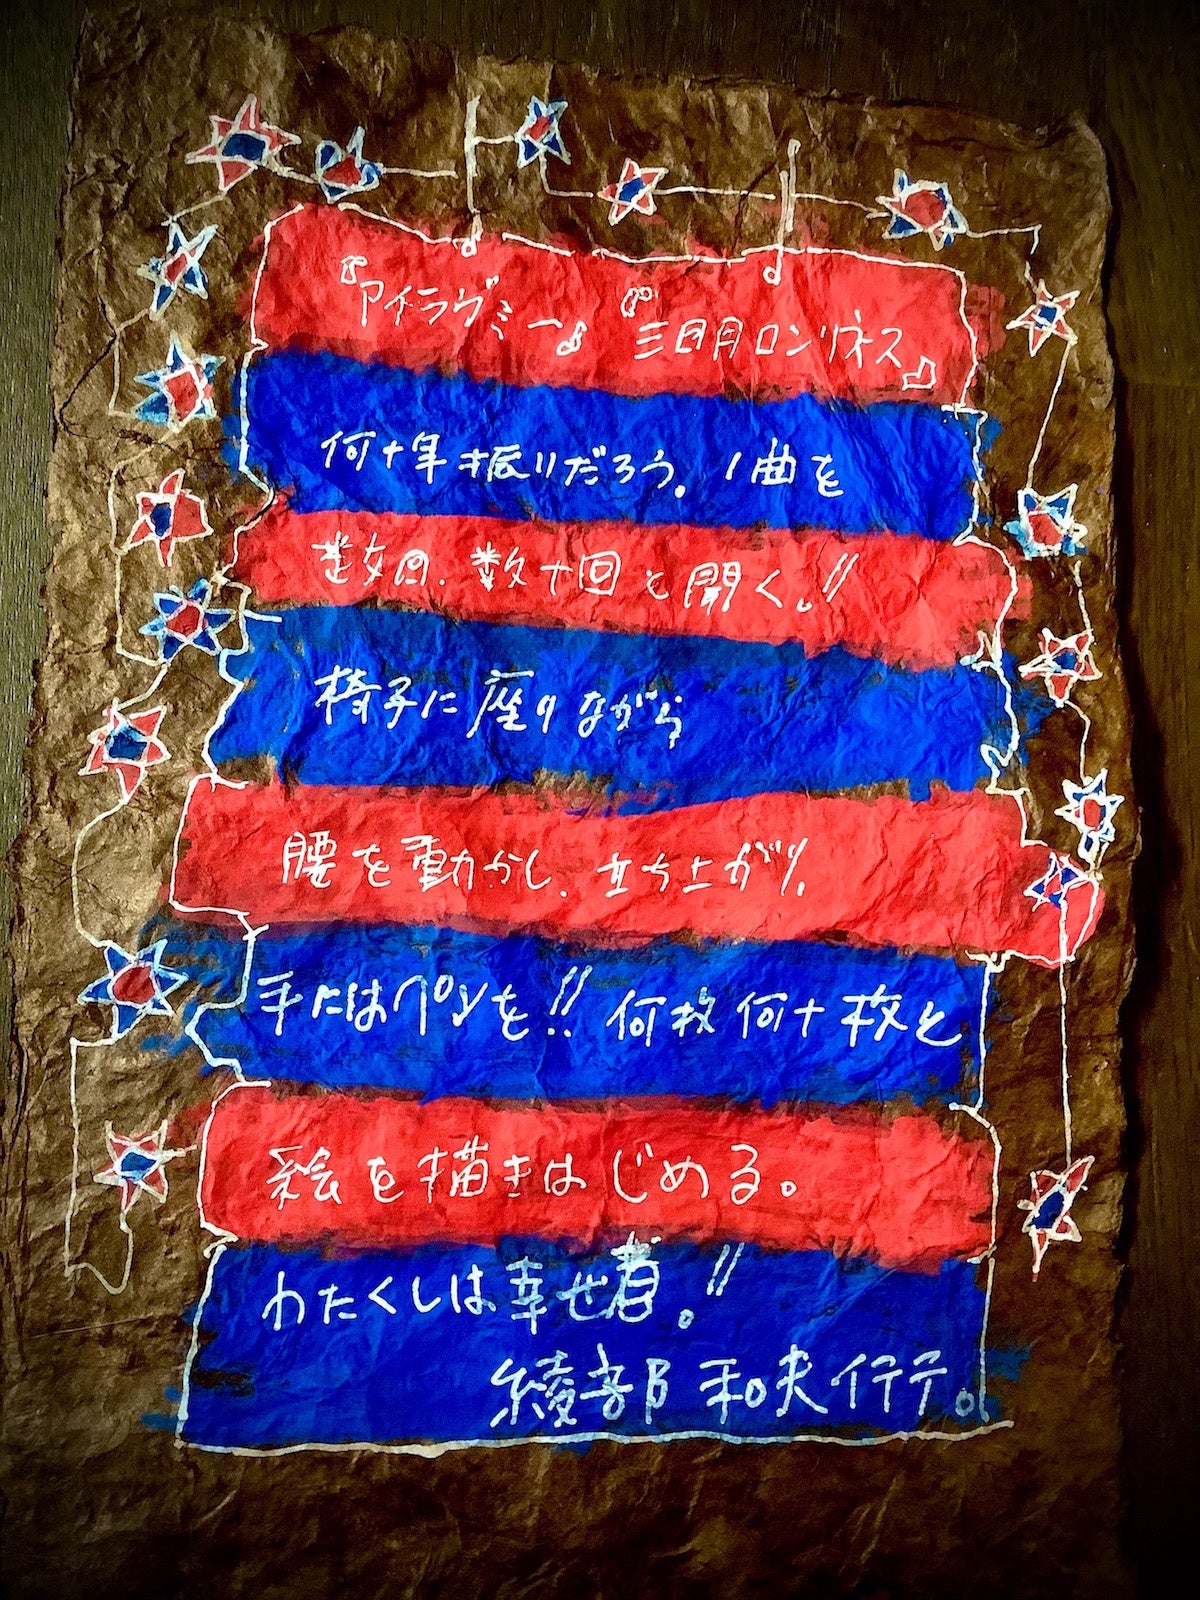 『アイラヴミー』『三日月ロンリネス』
何十年振りだろう。1曲を
数回、数十回と聞く。!!
椅子に座りながら
腰を動かし、立ち上がり、
手にはペンを!!何枚何十枚と
絵を描きはじめる。
わたくしは幸せ者。!!
綾部和夫行。